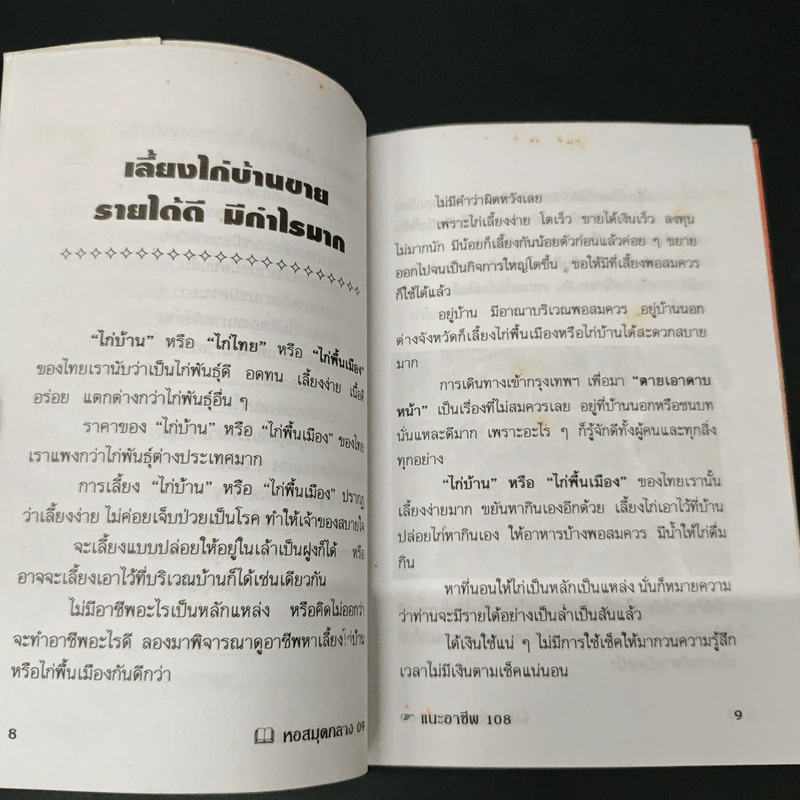 เลี้ยงไก่บ้านขาย
รายได้ดี มีกำไรมาก
"ไก่บ้าน" หรือ "ไก่ไทย" หรือ "ไก่พื้นเมือง"
ของไทยเรานับว่าเป็นไก่พันธุ์ดี อดทน เลี้ยงง่าย เนื้อดี
อร่อย แตกต่างกว่าไก่พันธุ์อื่น ๆ
ราคาของ "ไก่บ้าน" หรือ "ไก่พื้นเมือง" ของไทย
เราแพงกว่าไก่พันธุ์ต่างประเทศมาก
การเลี้ยง "ไก่บ้าน" หรือ "ไก่พื้นเมือง" ปรากฏ
ว่าเลี้ยงง่าย ไม่ค่อยเจ็บป่วยเป็นโรค ทำให้เจ้าของสบายใจ
จะเลี้ยงแบบปล่อยให้อยู่ในเล้าเป็นฝูงก็ได้ หรือ
อาจจะเลี้ยงเอาไว้ที่บริเวณบ้านก็ได้เช่นเดียวกัน
ไม่มีอาชีพอะไรเป็นหลักแหล่ง หรือคิดไม่ออกว่า
จะทำอาชีพอะไรดี ลองมาพิจารณาดูอาชีพหาเลี้ยงไก่บ้าน
หรือไก่พื้นเมืองกันดีกว่า
8
หอสมุดกลาง 09
ไม่มีคำว่าผิดหวังเลย
เพราะไก่เลี้ยงง่าย โตเร็ว ขายได้เงินเร็ว ลงทุน
ไม่มากนัก มีน้อยก็เลี้ยงกันน้อยตัวก่อนแล้วค่อย ๆ ขยาย
ออกไปจนเป็นกิจการใหญ่โตขึ้น ขอให้มีที่เลี้ยงพอสมควร
ก็ใช้ได้แล้ว
อยู่บ้าน มีอาณาบริเวณพอสมควร อยู่บ้านนอก
ต่างจังหวัดก็เลี้ยงไก่พื้นเมืองหรือไก่บ้านได้สะดวกสบาย
มาก
การเดินทางเข้ากรุงเทพฯ เพื่อมา "ตายเอาดาบ
หน้า" เป็นเรื่องที่ไม่สมควรเลย อยู่ที่บ้านนอกหรือชนบท
นั่นแหละดีมาก เพราะอะไร ๆ ก็รู้จักดีทั้งผู้คนและทุกสิ่ง
ทุกอย่าง
"ไก่บ้าน" หรือ "ไก่พื้นเมือง" ของไทยเรานั้น
เลี้ยงง่ายมาก ขยันหากินเองอีกด้วย เลี้ยงไก่เอาไว้ที่บ้าน
ปล่อยไก่หากินเอง ให้อาหารบ้างพอสมควร มีน้ำให้ไก่ดื่ม
กิน
หาที่นอนให้ไก่เป็นหลักเป็นแหล่ง นั่นก็หมายความ
ว่าท่านจะมีรายได้อย่างเป็นล่ำเป็นสันแล้ว
ได้เงินใช้แน่ ๆ ไม่มีการใช้เช็คให้มากวนความรู้สึก
เวลาไม่มีเงินตามเช็คแน่นอน
แนะอาชีพ 108
9